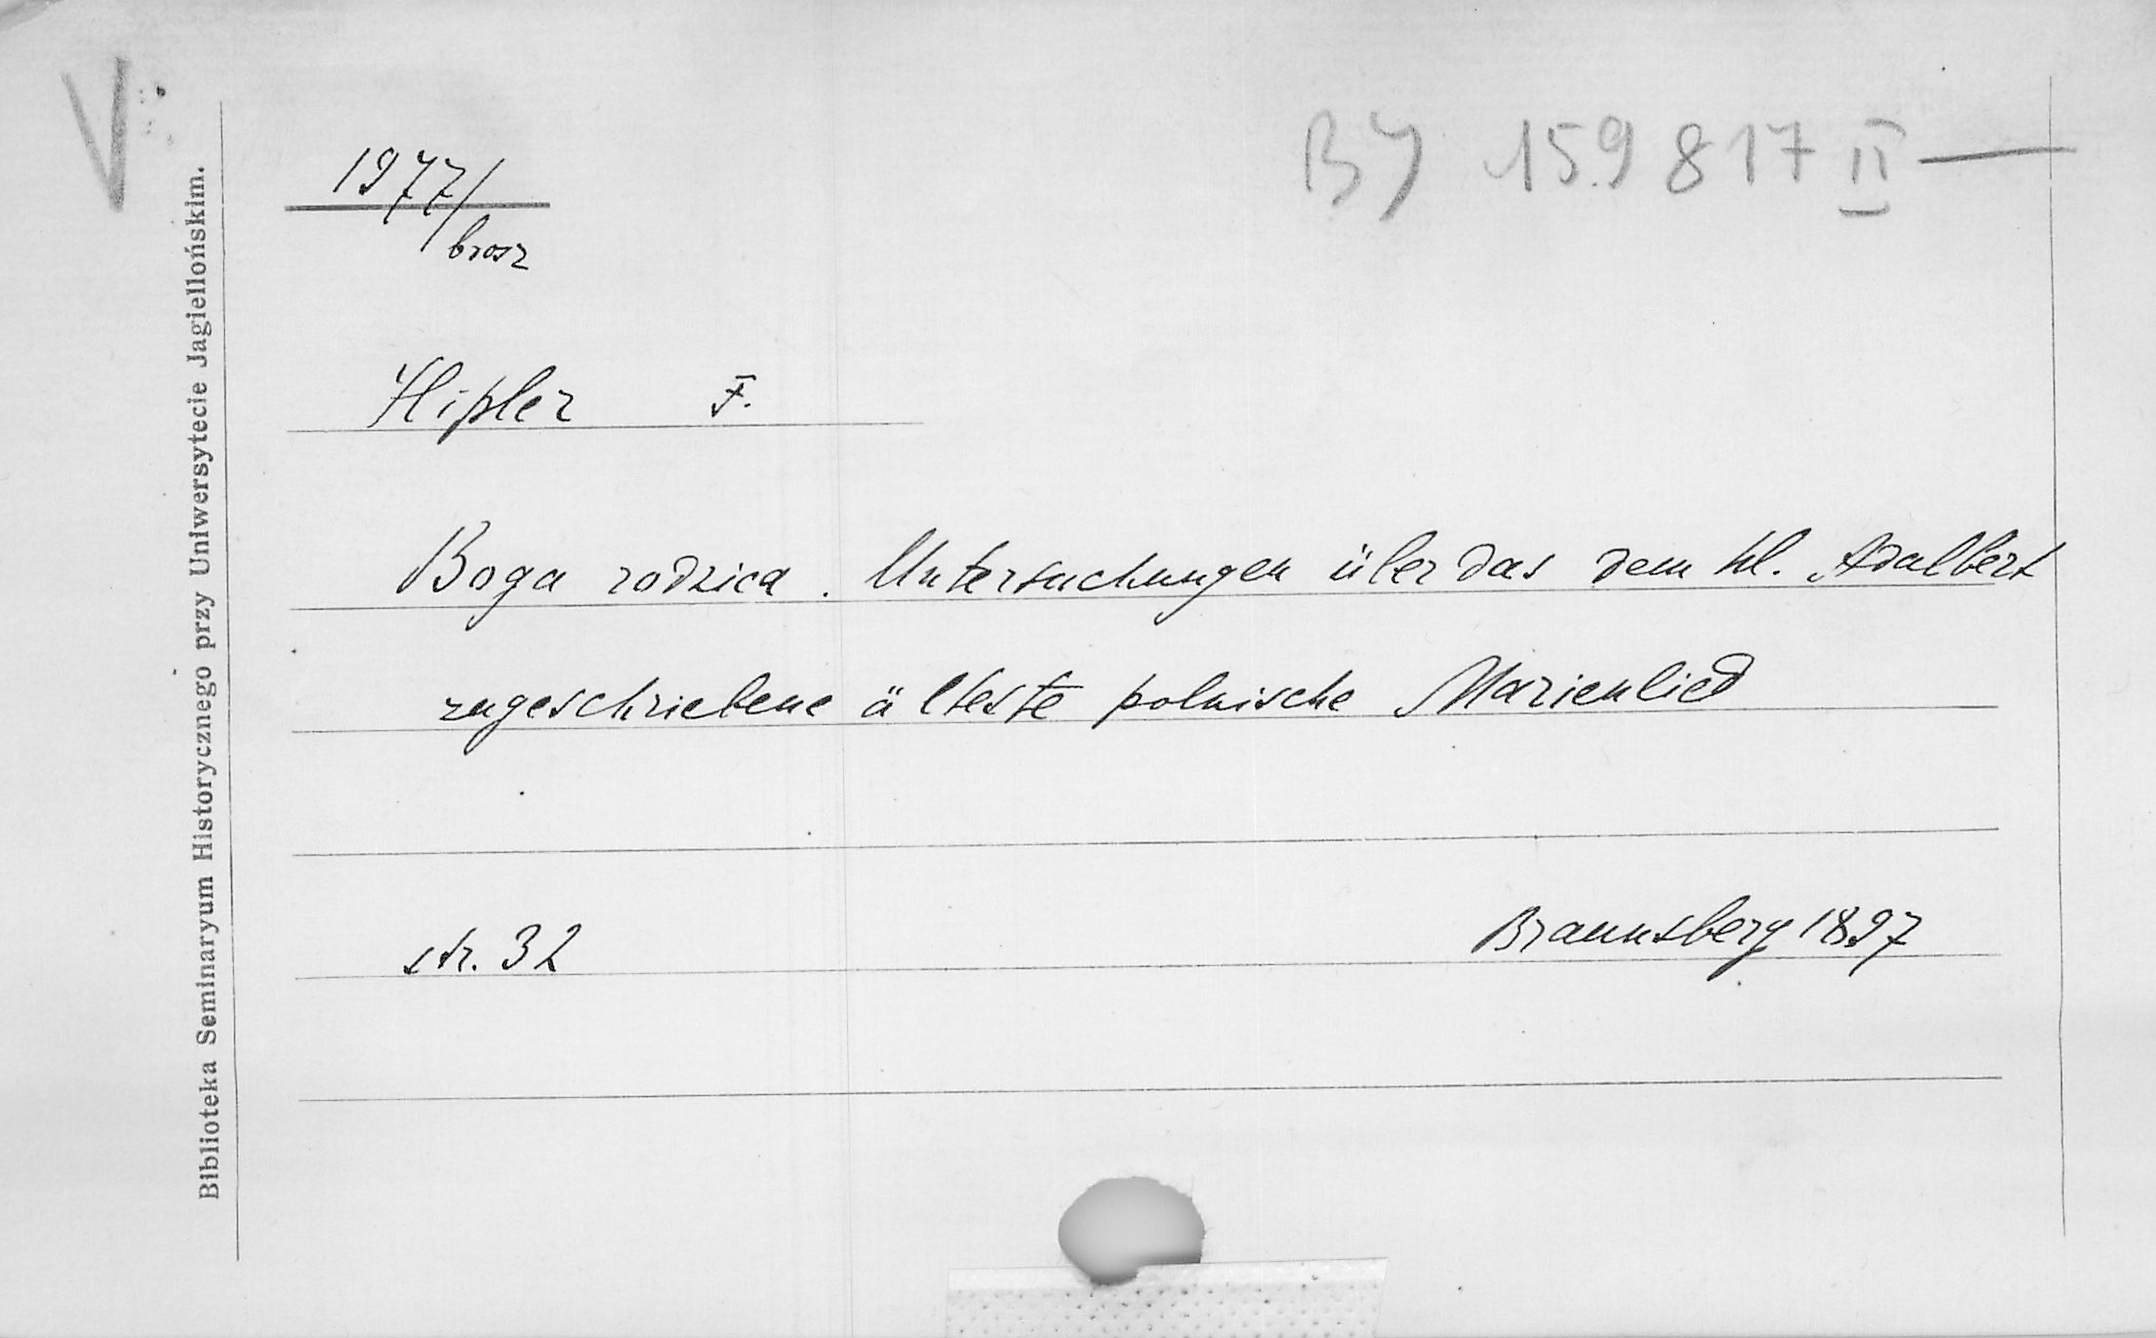 V
BJ 159817 II —
1977/
brosz
Hipler F.
Boga rodzica. Untersuchungen über das dem hl. Adalbert
zugeschriebene älteste polnische Marienlied
str. 32 Braunsberg 1897
Biblioteka Seminaryum Historycznego przy Uniwersytecie Jagiellońskim.